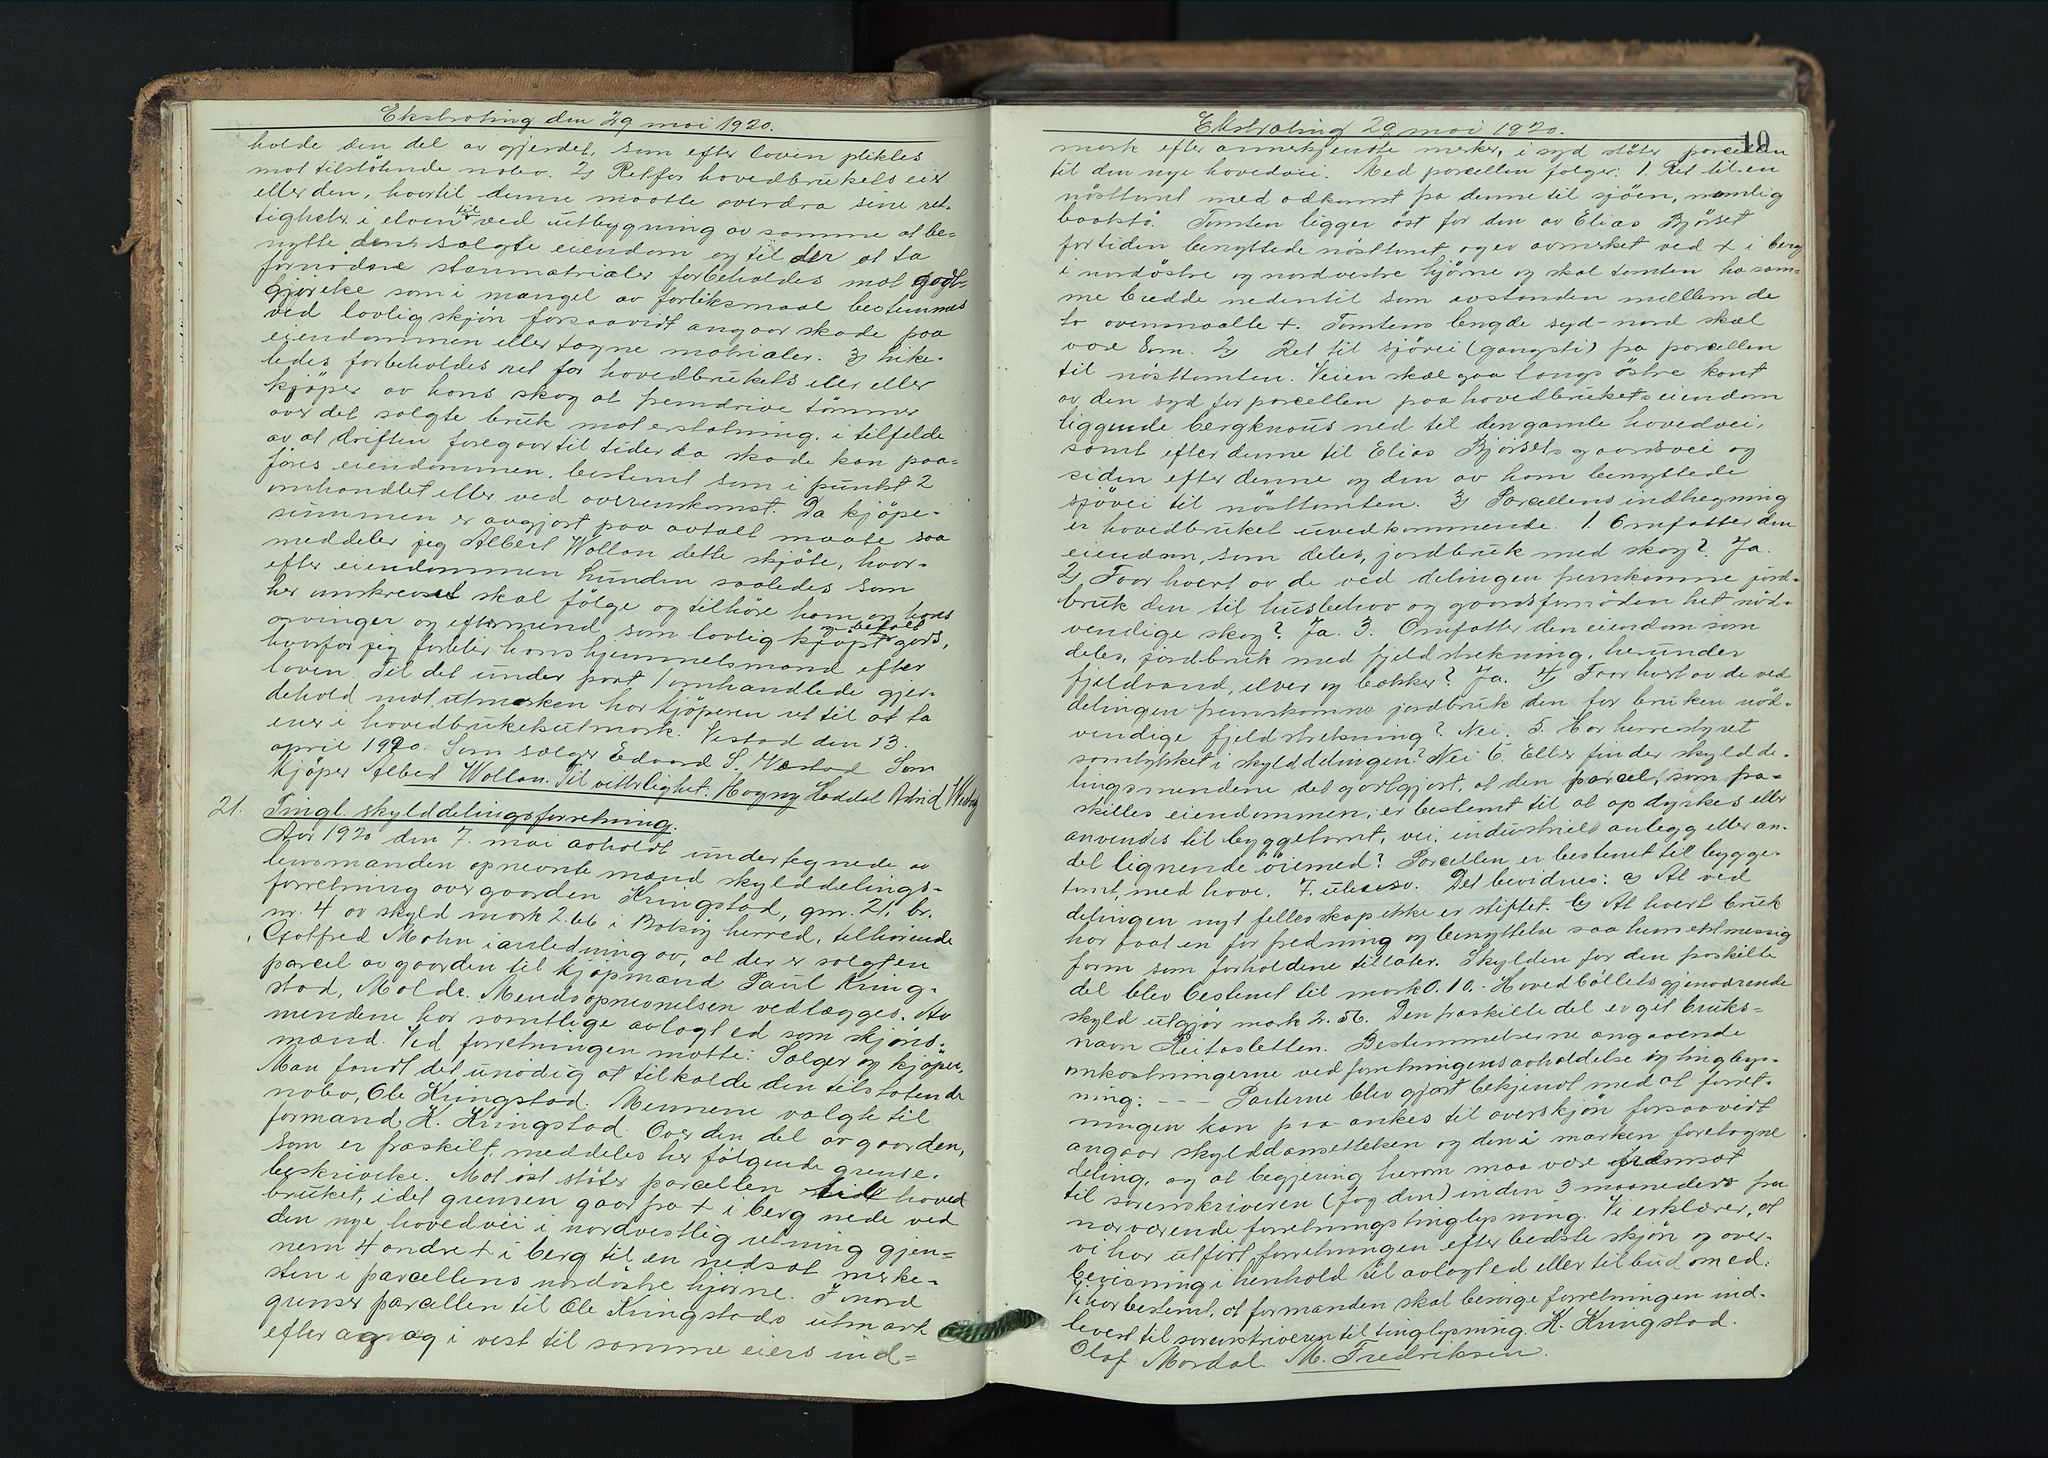 Ekstrating den 29 mai 1920.
holde den del av gjerdet, som efter loven pliktes
mot tilstötende nabo. 2) Ret for hovedbrukets eier
eller den, hvortil denne maatte overdra sine ret-
tigheter i elven til ved utbygning av samme at be-
nytte den solgte eiendom og til der at ta
fornödne steinmaterialer forbeholdes mot godt-
gjörelse som i mangel av forliksmaal bestemmes
ved lovlig skjön forsaavidt angaar skade paa
eiendommen eller tagne materialer. 3) Like-
ledes forbeholdes ret for hovedbrukets eier eller
kjöper av hans skog at fremdrive tömmer
over det solgte bruk mot erstatning, i tilfelde
av at driften foregaar til tider da skade kan paa-
föres eiendommen, bestemt som i punkt 2
omhandlet eller ved overenskomst. Da kjöpe-
summen er avgjort paa avtalt maate saa
meddeler jeg Albert Wollan dette skjöte, hvor-
efter eiendommen Lunden saaledes som
her omskrevet skal fölge og tilhöre ham og hans
arvinger og eftermænd som lovlig kjöpt og betalt gods,
hvorfor jeg forblir hans hjemmelsmand efter
loven. Til det under post 1 omhandlede gjer-
dehold mot utmarken har kjöperen ret til at ta
ener i hovedbrukets utmark. Vestad den 13.
april 1920. Som sælger Edvard S. Vestad Som
kjöper Albert Wollan. Til vitterlighet: Hagny Haddal Astrid
21. Tingl. skylddelingsforretning.
Aar 1920 den 7. mai avholdt undertegnede av
lensmanden opnevnte mænd skylddelings-
forretning over gaarden Kringstad, gnr. 21, br.
nr. 4 av skyld mark 2.66 i Bolsöy herred, tilhörende
Gotfred Mohn i anledning av, at der er solgt en
parcel av gaarden til kjöpmand Paul Kring-
stad, Molde. Mendsopnevnelsen vedlægges. Av
mendene har samtlige avlagt ed som skjöns-
mænd. Ved forretningen mötte: Sælger og kjöper.
Man fandt det unödig at tilkalde den tilstötende
nabo, Ole Kringstad. Mennene valgte til
formand K. Kringstad. Over den del av gaarden,
som er fraskilt, meddeles her fölgende grense-
beskrivelse. Mot öst stöter parcellen til hoved
bruket, idet grensen gaar fra + i berg nede ved
den nye hovedvei i nordvestlig retning gjen-
nem 4 andre + i berg til en nedsat merke-
sten i parcellens nordöstre hjörne. I nord
grenser parcellen til Ole Kringstads utmark
efter og i vest til samme eiers ind-
Ekstrating 29 mai 1920.
19
mark efter annerkjendte merker, i syd stöter parcellen
til den nye hovedvei. Med parcellen fölger: 1. Ret til en
nösttomt med adkomst fra denne til sjöen, nemlig
baatstö. Tomten ligger öst for den av Elias Bjöset
for tiden benyttede nösttomt og er avmerket ved + i berg
i nordöstre og nordvestre hjörne og skal tomten ha sam-
me bredde nedentil som avstanden mellem de
to ovenmaalte +. Tomtens lengde syd-nord skal
være 8 m. 2) Ret til sjövei (gangsti) fra parcellen
til nösttomten. Veien skal gaa langs östre kant
av den syd for parcellen paa hovedbrukets eiendom
liggende bergknaus ned til den gamle hovedvei,
samt efter denne til Elias Bjösets gaardsvei og
siden efter denne og den av ham benyttede
sjövei til nösttomten. 3) Parcellens indhegning
er hovedbruket uvedkommende. 1. Omfatter den
eiendom, som deles, jordbruk med skog? Ja.
2) Faar hvert av de ved delingen fremkomne jord-
bruk den til husbehov og gaardsfornödenhet nöd-
vendige skog? Ja. 3. Omfatter den eiendom som
deles, jordbruk med fjeldstrekning, herunder
fjeldvand, elver og bekker? Ja. 4) Faar hvert av de ved
delingen fremkomne jordbruk den for bruken nöd-
vendige fjeldstrekning? Nei. 5. Har herredstyret
samtykket i skylddelingen? Nei 6. Eller finder skyldde-
lingsmendene det godtgjort, at den parcel, som fra-
skilles eiendommen, er bestemt til at opdyrkes eller
anvendes til byggetomt, vei, industrielt anlegg eller an-
det lignende öiemed? Parcellen er bestemt til bygge-
tomt, med have. 7. Det bevidnes: a) At ved
delingen nyt fellesskap ikke er stiftet. b) At hvert bruk
har faat en for fredning og benyttelse saa hensigtmessig
form som forholdene tillater. Skylden for den fraskilte
del blev bestemt til mark 0.10. - Hovedböllets gjenværende
skyld utgjör mark 2.56. Den fraskilte del er git bruks-
navn Reitasletten. Bestemmelserne angaaende
omkostningerne ved forretningens avholdelse og tinglys-
ning: - - - Parterne blev gjort bekjendt med at forret-
ningen kan paaankes til overskjön forsaavidt
angaar skyldansettelsen og den i marken foretagne
deling, og at begjering herom maa være fremsat
til sorenskriveren (fogden) inden 3 maaneder fra
nærværende forretnings tinglysning. Vi erklærer, at
vi har utfört forretningen efter bedste skjön og over-
bevisning i henhold til avlagt ed eller tilbud om ed.
Vi har bestemt, at formanden skal besörge forretningen ind-
levert til sorenskriveren til tinglysning. K. Kringstad.
Olaf Mordal. M. Fredriksen.